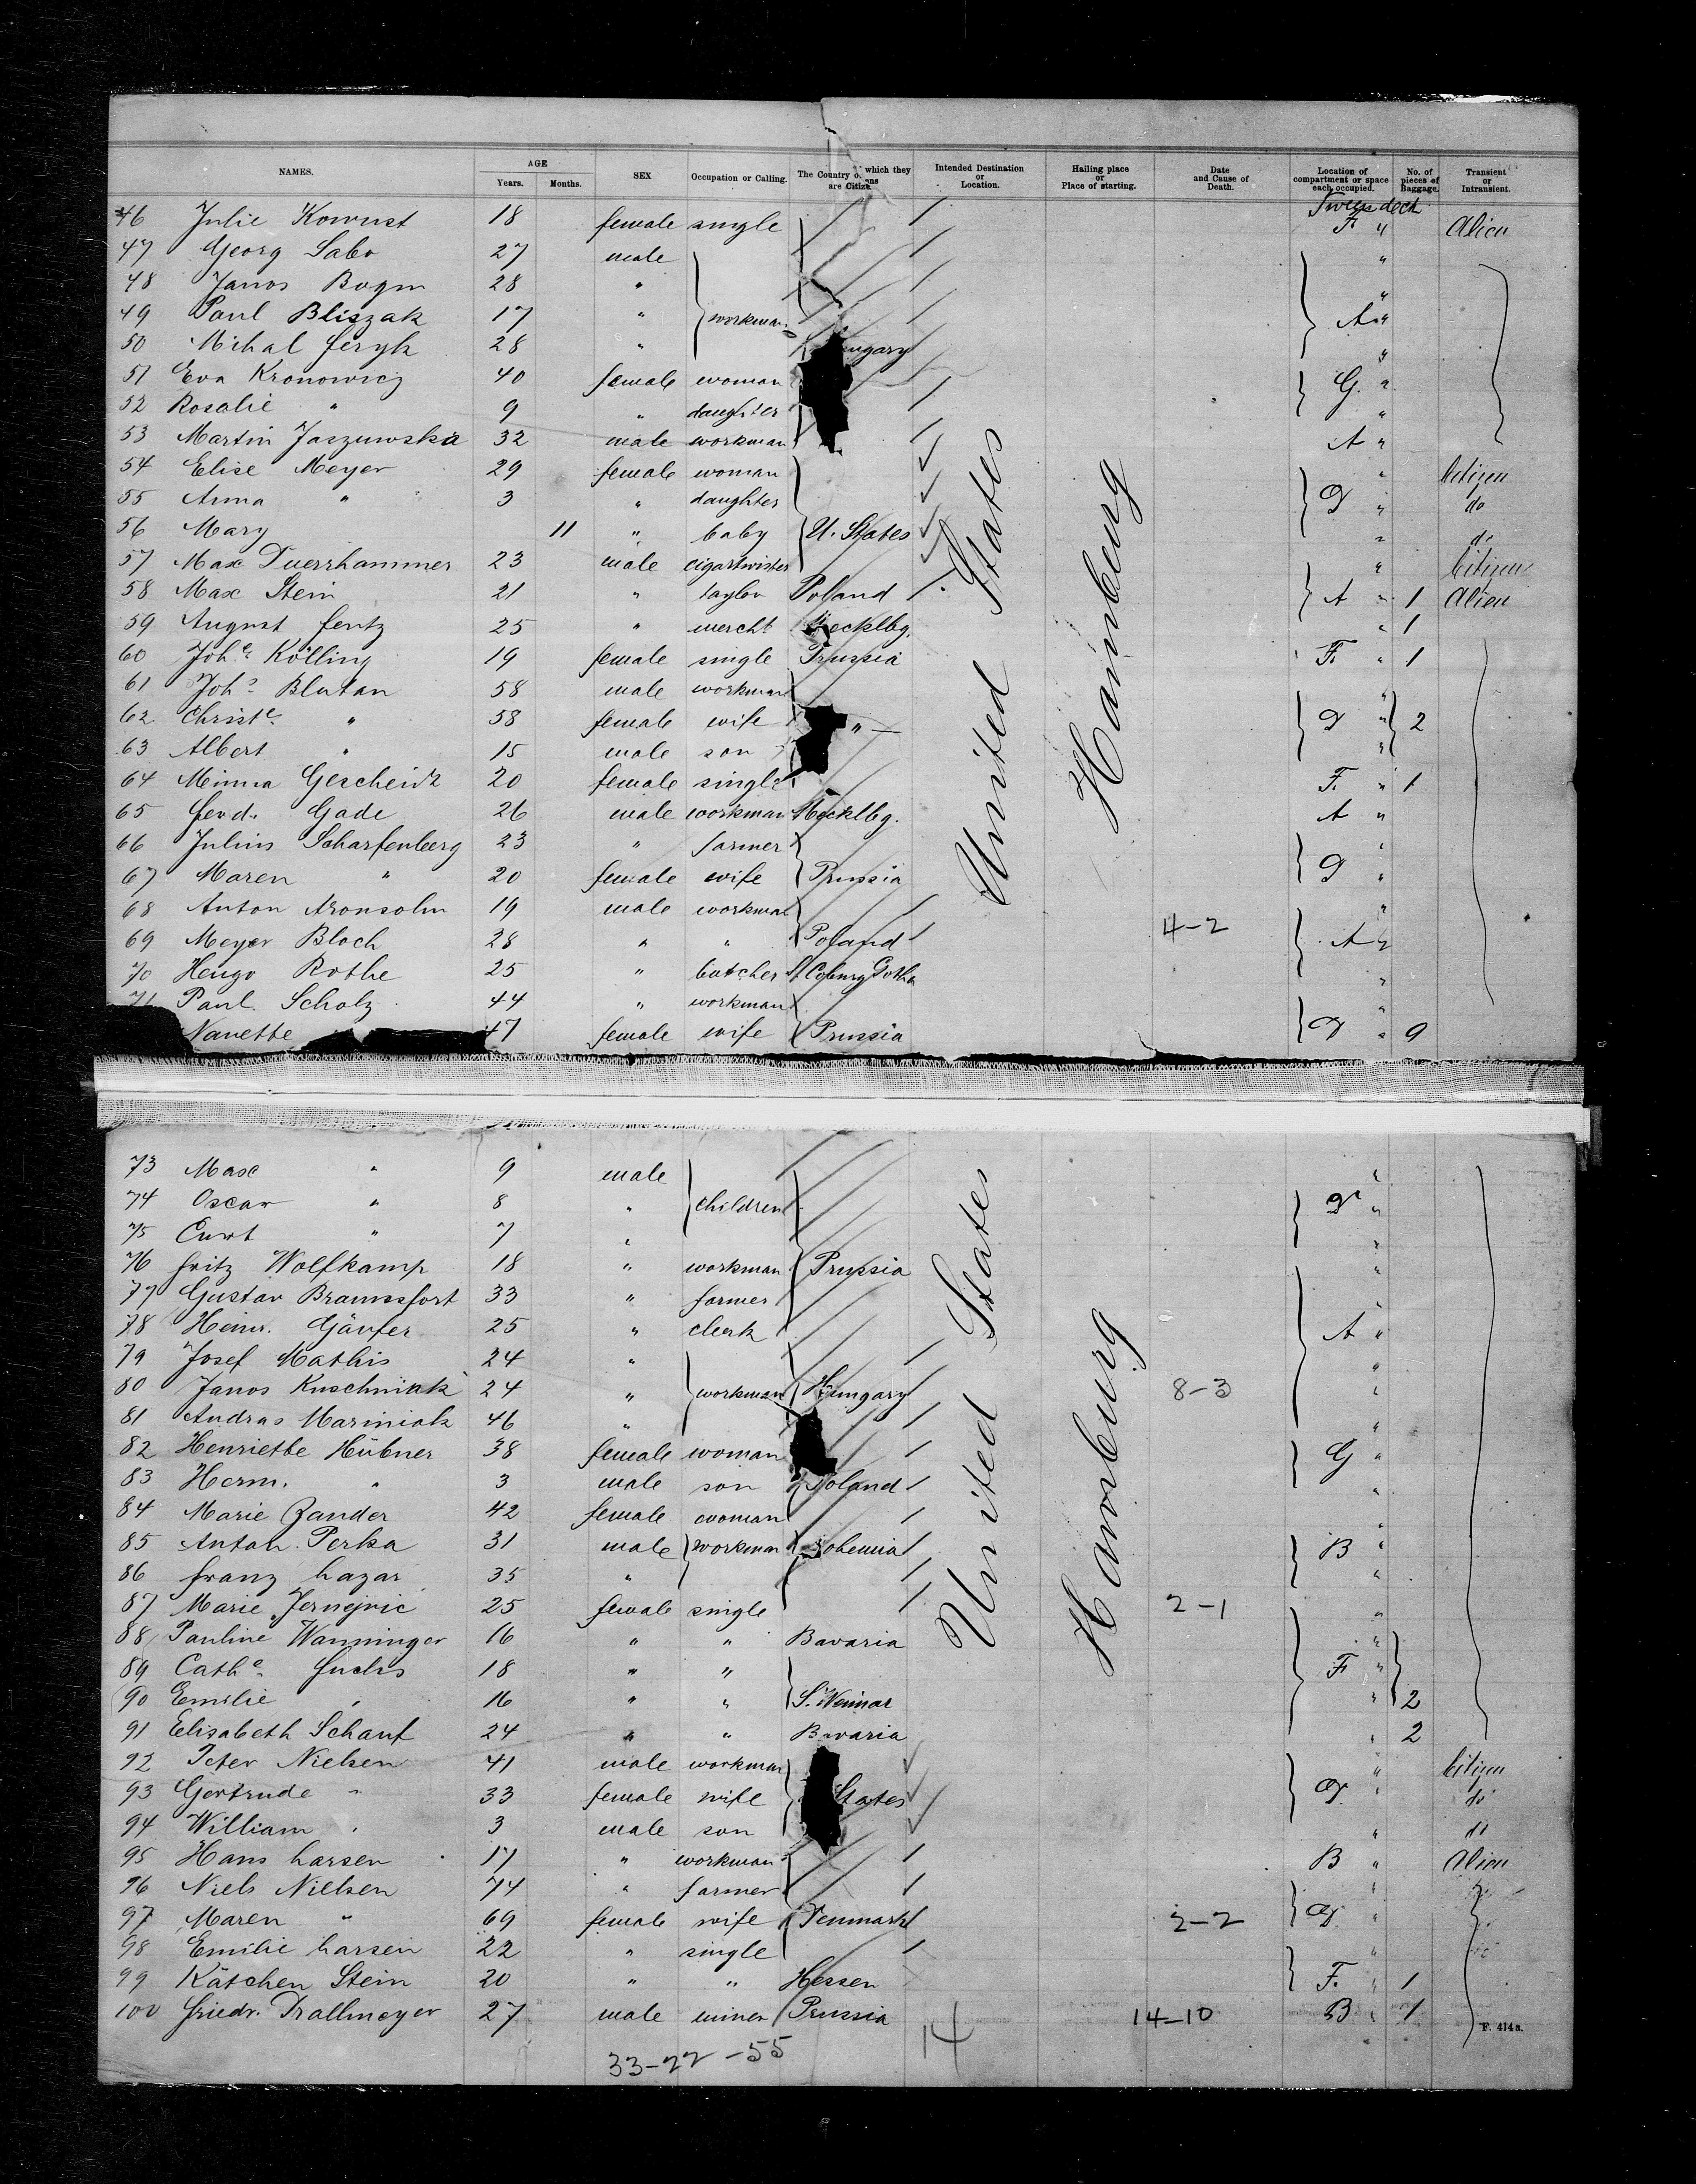 NAMES. AGE Years. Months. SEX Occupation or Calling. The Country of which they are Citizens Intended Destination or Location. Hailing place or Place of starting. Date and Cause of Death. Location of compartment or space each occupied. No. of pieces of Baggage. Transient or Intransient.
Tween deck
46 Julie Kownst 18 female single F. " Alien
47 Georg Sabo 27 male "
48 Janos Bogm 28 " "
49 Paul Bliszak 17 " workman A "
50 Mihal feryk 28 " Hungary "
51 Eva Kronowicz 40 female woman G. "
52 Rosalie " 9 " daughter "
53 Martin Jaszuwska 32 male workman A "
54 Elise Meyer 29 female woman " Citizen
55 Anna " 3 " daughter " do
56 Mary 11 " baby U. States " do
57 Max Duerrhammer 23 male cigartwister " Citizen
58 Max Stein 21 " taylor Poland A " 1 Alien
59 August fentz 25 " mercht Mecklbg. " 1
60 Johe Kölling 19 female single Prussia F. " 1
61 Johs Blutan 58 male workman "
62 Christe " 58 female wife " " 2
63 Albert " 15 male son "
64 Minna Gescheidt 20 female single F. " 1
65 ferd. Gade 26 male workman Mecklbg. A "
66 Julius Scharfenberg 23 " farmer "
67 Maren " 20 female wife Prussia "
68 Anton Aronsohn 19 male workman "
69 Meyer Bloch 28 " " Poland 4-2 A "
70 Hugo Rothe 25 " butcher S. Coburg Gotha "
71 Paul Scholz 44 " workman "
Nanette 47 female wife Prussia " 9
United States
Hamburg
73 Max " 9 male "
74 Oscar " 8 " children "
75 Curt " 7 " "
76 fritz Wolfkamp 18 " workman Prussia "
77 Gustav Bramssfort 33 " farmer "
78 Heinr. Gäufer 25 " clerk A "
79 Josef Mathis 24 " "
80 Janos Kuschniak 24 " workman Hungary 8-3 "
81 Andras Mariniak 46 " "
82 Henriette Hübner 38 female woman G "
83 Herm. " 3 male son Poland "
84 Marie Zander 42 female woman "
85 Antoh. Perka 31 male workman Bohemia B "
86 franz Lazar 35 " "
87 Marie Jernejvic 25 female single 2-1 "
88 Pauline Wanninger 16 " " Bavaria "
89 Cathe fuchs 18 " " F "
90 Emilie " 16 " " S. Weimar " 2
91 Elisabeth Schauf 24 " " Bavaria " 2
92 Peter Nielsen 41 male workman " Citizen
93 Gertrude " 33 female wife States " do
94 William " 3 male son " do
95 Hans Larsen 17 " workman B " Alien
96 Niels Nielsen 74 " farmer "
97 Maren " 69 female wife Denmark 2-2 "
98 Emilie Larsen 22 " single "
99 Kätchen Stein 20 " " Hessen F. " 1
100 friedr. Trallmeyer 27 male miner Prussia 14-10 B " 1
United States
Hamburg
F. 414a.
33-22-55 14